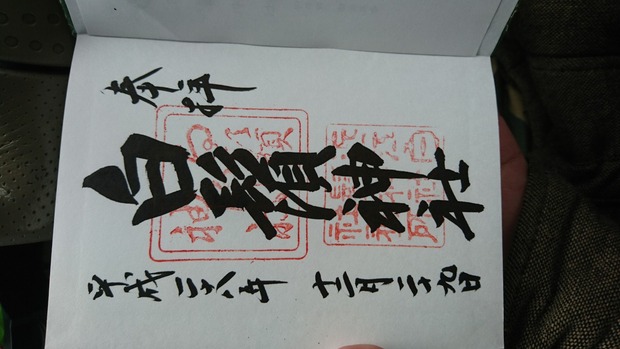 奉拝
白鬚神社
平成二八年 十二月二九日